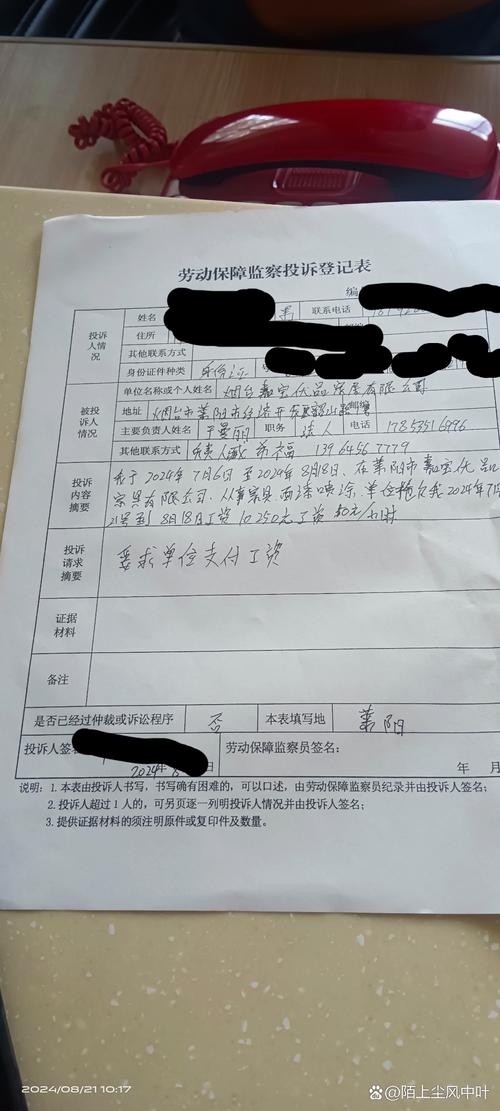 劳动保障监察投诉登记表
编
投诉人情况
姓名
联系电话
住所
其他联系方式
身份证件种类 身份证
被投诉人情况
单位名称或个人姓名 烟台嘉宝优品家居有限公司
地址 烟台市莱阳市经济开发区 邮编
主要负责人姓名 于曼丽 职务 法人 电话 17853516996
其他联系方式 负责人 福 13964567779
投诉内容摘要
我于2024年7月6日至2024年8月18日、在莱阳市嘉宝优品
家具有限公司、从事家具面漆喷涂、单位拖欠我2024年7月
到8月18日工资10250元工资 /小时
投诉请求摘要
要求单位支付工资
证据材料
备注
是否已经过仲裁或诉讼程序 否 本表填写地 莱阳
投诉人签名 劳动保障监察员签名:
2024年 日 年 月
说明: 1. 本表由投诉人书写, 书写确有困难的, 可以口述, 由劳动保障监察员纪录并由投诉人签名;
2. 投诉人超过 1 人的, 可另页逐一列明投诉人情况并由投诉人签名;
3. 提供证据材料的须注明原件或复印件及数量。
2024/08/21 10:17
@陌上尘风中叶